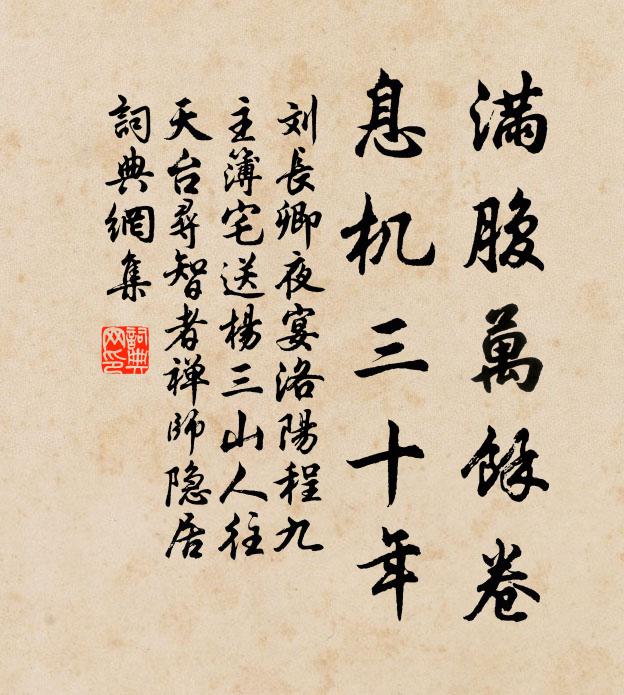 滿腹萬餘卷
息机三十年
刘長卿夜宴洛陽程九
主簿宅送楊三山人往
天台尋智者禅師隐居
詞典網集
詞典
网印